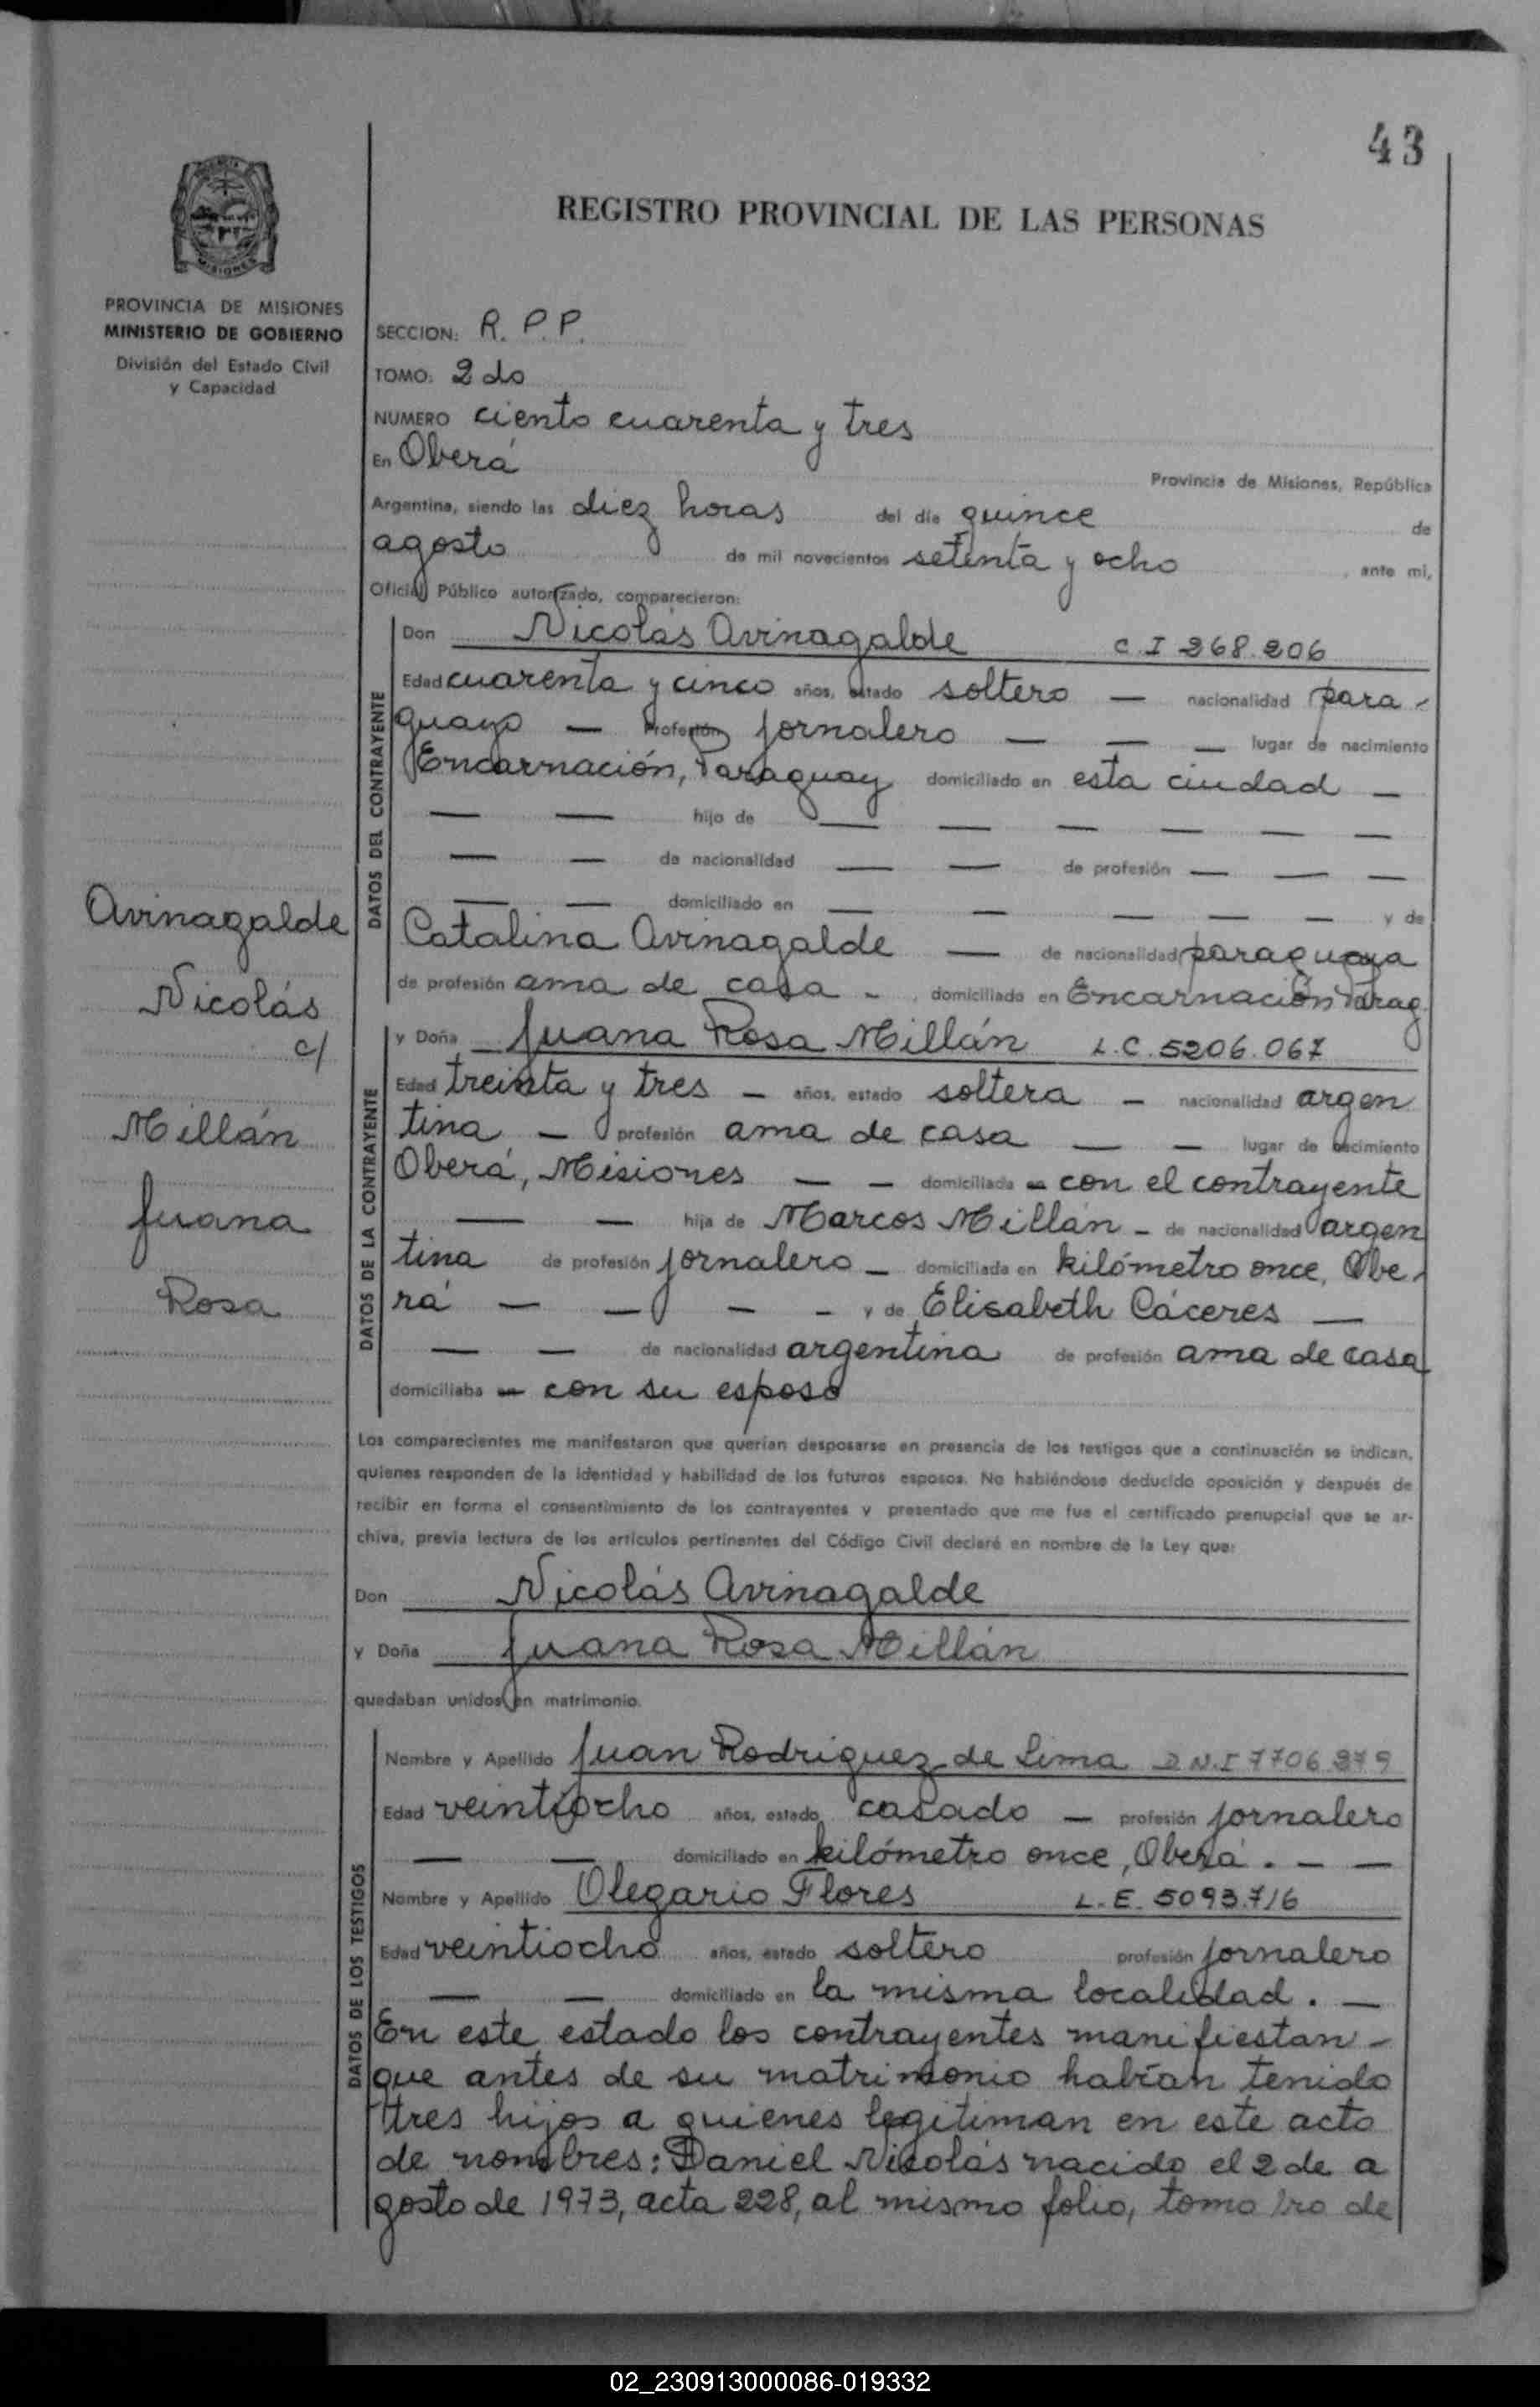 43
REGISTRO PROVINCIAL DE LAS PERSONAS
MISIONES
PROVINCIA DE MISIONES
MINISTERIO DE GOBIERNO
División del Estado Civil
y Capacidad
SECCION: R. P. P.
TOMO: 2do
NUMERO ciento cuarenta y tres
En Oberá
Provincia de Misiones, República
Argentina, siendo las diez horas del día quince de
agosto de mil novecientos setenta y ocho, ante mi,
Oficial Público autorizado, comparecieron:
DATOS DEL CONTRAYENTE
Don Nicolás Avinagalde C.I 268.206
Edad cuarenta y cinco años, estado soltero — nacionalidad para-
guayo — Profesión jornalero — — — lugar de nacimiento
Encarnación, Paraguay domiciliado en esta ciudad —
— — hijo de — — — — — —
— — de nacionalidad — — de profesión — — —
— — domiciliado en — — — — — y de
Catalina Avinagalde — de nacionalidad paraguaya
de profesión ama de casa -, domiciliada en Encarnación Parag.
Avinagalde
Nicolás
c/
Millán
Juana
Rosa
DATOS DE LA CONTRAYENTE
y Doña Juana Rosa Millán L.C. 5206.067
Edad treinta y tres — años, estado soltera — nacionalidad argen
tina — profesión ama de casa — — lugar de nacimiento
Oberá, Misiones — — domiciliada — con el contrayente
— — hija de Marcos Millán - de nacionalidad argen
tina de profesión jornalero — domiciliada en kilómetro once, Obe-
rá — — — — y de Elisabeth Cáceres —
— — de nacionalidad argentina de profesión ama de casa
domiciliaba — con su esposo
Los comparecientes me manifestaron que querían desposarse en presencia de los testigos que a continuación se indican,
quienes responden de la identidad y habilidad de los futuros esposos. No habiéndose deducido oposición y después de
recibir en forma el consentimiento de los contrayentes y presentado que me fue el certificado prenupcial que se ar-
chiva, previa lectura de los artículos pertinentes del Código Civil declaré en nombre de la Ley que:
Don Nicolás Avinagalde
y Doña Juana Rosa Millán
quedaban unidos en matrimonio.
DATOS DE LOS TESTIGOS
Nombre y Apellido Juan Rodriguez de Lima D.N.I 7706.379
Edad veintiocho años, estado casado — profesión jornalero
— — domiciliado en kilómetro once, Oberá. — —
Nombre y Apellido Olegario Flores L.E. 5093.716
Edad veintiocho años, estado soltero profesión jornalero
— — domiciliado en la misma localidad. —
En este estado los contrayentes manifiestan -
que antes de su matrimonio habían tenido
tres hijos a quienes legitiman en este acto
de nombres: Daniel Nicolás nacido el 2 de a
gosto de 1973, acta 228, al mismo folio, tomo 1ro de
02_230913000086-019332